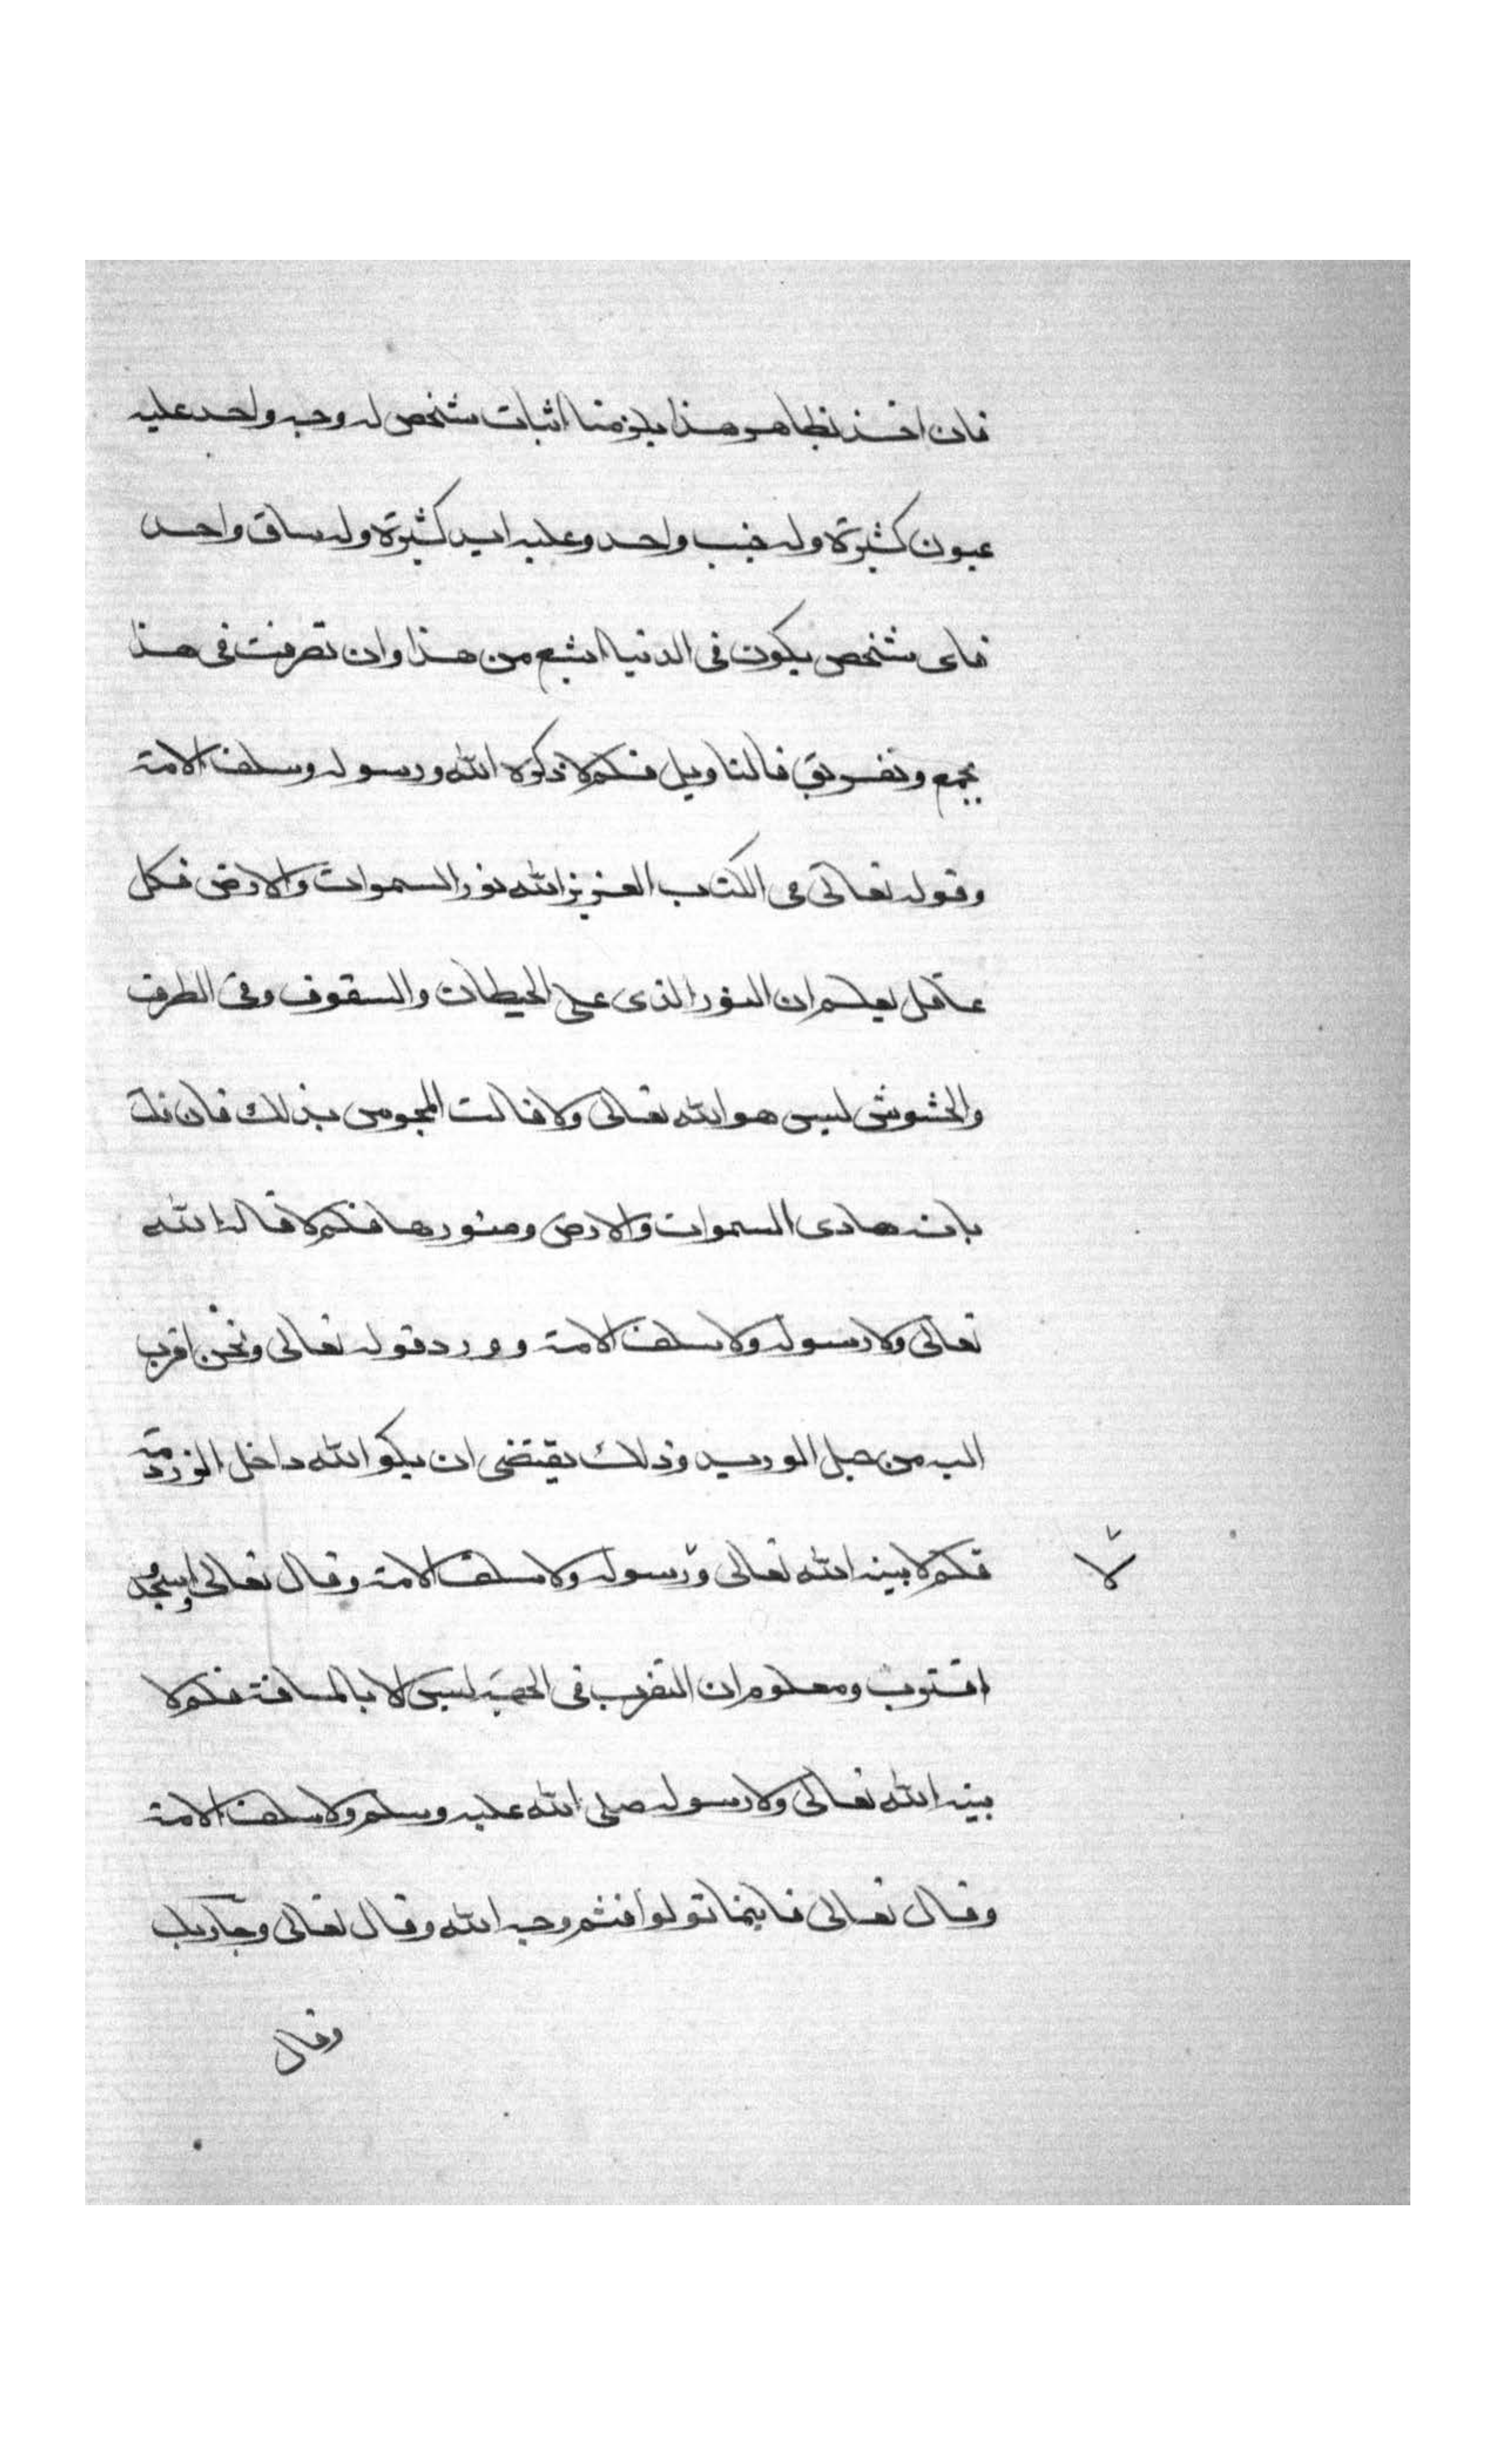 فان اخذ بظاهر هذا يلزمنا اثبات شخص له وجه واحد عليه
عيون كثيرة وله جنب واحد وعليه ايد كثيرة وله ساق واحد
فاى شخص يكون فى الدنيا ابشع من هذا وان تصرفت فى هذا
بجمع وتفريق فالتاويل فلم لا ذكره الله ورسوله وسلف الامة
وقوله تعالى فى الكتب العزيز الله نور السموات والارض فكل
عاقل يعلم ان النور الذى على الحيطان والسقوف وفى الطرق
والحشوش ليس هو الله تعالى ولا قالت المجوس بذلك فان قلت
بانه هادى السموات والارض ومنورها فلم لا قاله الله
تعالى ولا رسوله ولا سلف الامة وورد قوله تعالى ونحن اقرب
اليه من حبل الوريد وذلك يقتضى ان يكو الله داخل الزردمة
فلم لا بينه الله تعالى ورسوله ولا سلف الامة وقال تعالى واسجد
لا
اقترب ومعلوم ان التقرب فى الجهة ليس الا بالمسافة فلم لا
بينه الله تعالى ولا رسوله صلى الله عليه وسلم ولا سلف الامة
وقال تعالى فاينما تولوا فثم وجه الله وقال تعالى وجا ربك
وقال